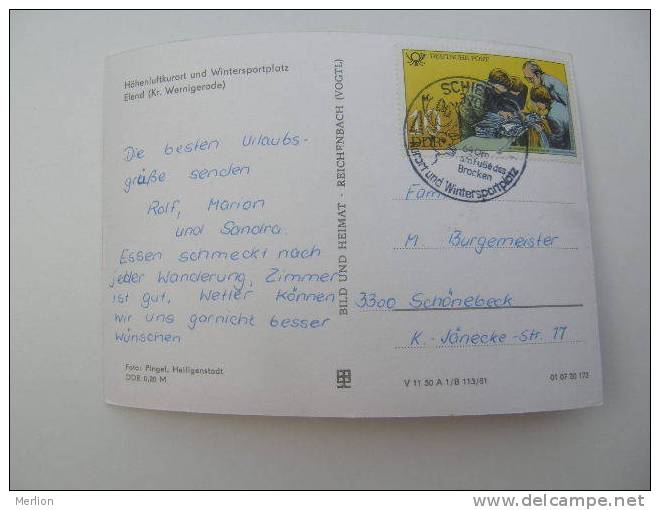 Höhenluftkurort und Wintersportplatz
Elend (Kr. Wernigerode)
Die besten Urlaubs-
grüße senden
Rolf, Marion
und Sandra.
Essen schmeckt nach
jeder Wanderung, Zimmer
ist gut, Wetter können
wir uns garnicht besser
wünschen
Foto: Pingel, Heiligenstadt
DDR 0,20 M
BILD UND HEIMAT · REICHENBACH (VOGTL)
DEUTSCHE POST
10
DDR
SCHIE
640m
am Fuße des
Brocken
Kurort und Wintersportplatz
Fam
M Burgemeister
3300 Schönebeck
K.-Jänecke-Str. 17
V 11 50 A 1/B 113/81
01 07 20 172
Merlion
www.delcampe.net